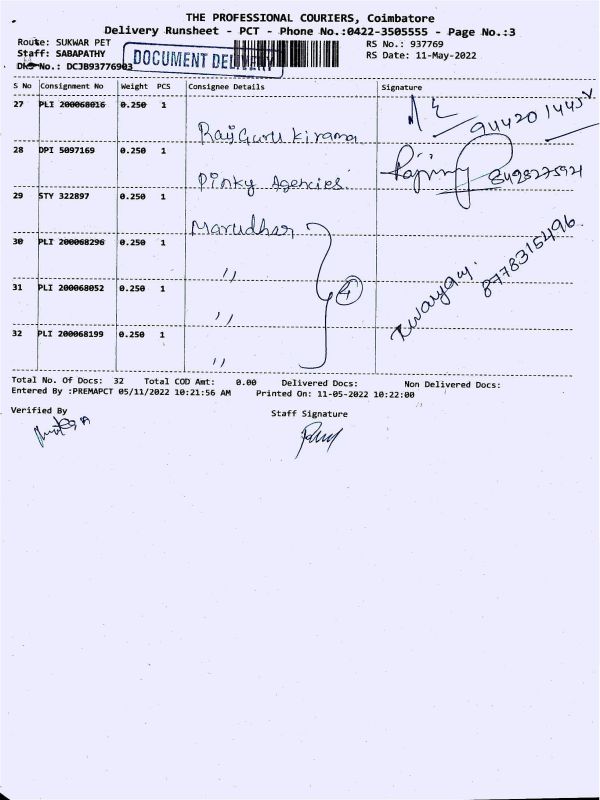 THE PROFESSIONAL COURIERS, Coimbatore
Delivery Runsheet - PCT - Phone No.:0422-3505555 - Page No.:3
Route: SUKWAR PET RS No.: 937769
Staff: SABAPATHY RS Date: 11-May-2022
No.: DCJB93776903
DOCUMENT DELIVERY
S No Consignment No Weight PCS Consignee Details Signature
27 PLI 200068016 0.250 1
Rajguru Kirama 94420 14454
28 DPI 5097169 0.250 1
Pinky Agencies 8428275921
29 STY 322897 0.250 1
Marudhar
30 PLI 200068296 0.250 1
" 8778315496
31 PLI 200068052 0.250 1
" 4
32 PLI 200068199 0.250 1
"
Total No. Of Docs: 32 Total COD Amt: 0.00 Delivered Docs: Non Delivered Docs:
Entered By :PREMAPCT 05/11/2022 10:21:56 AM Printed On: 11-05-2022 10:22:00
Verified By Staff Signature